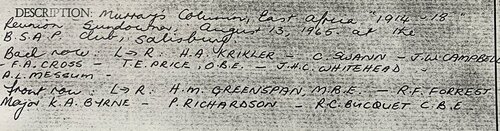 DESCRIPTION: Murray's Column, East Africa "1914-18
Reunion Sundowner. August 13, 1965. at the
B.S.A.P. Club, Salisbury
Back row L→R: H.A. KRIKLER - C. SWANN - J.W. CAMPBELL
- F.A. CROSS - T.E. PRICE, O.B.E. - J.H.C. WHITEHEAD -
A.L. MESSUM -
Front row: L→R. H.M. GREENSPAN, M.B.E. - R.F. FORREST
Major K.A. BYRNE - P. RICHARDSON - R.C. BUCQUET C.B.E